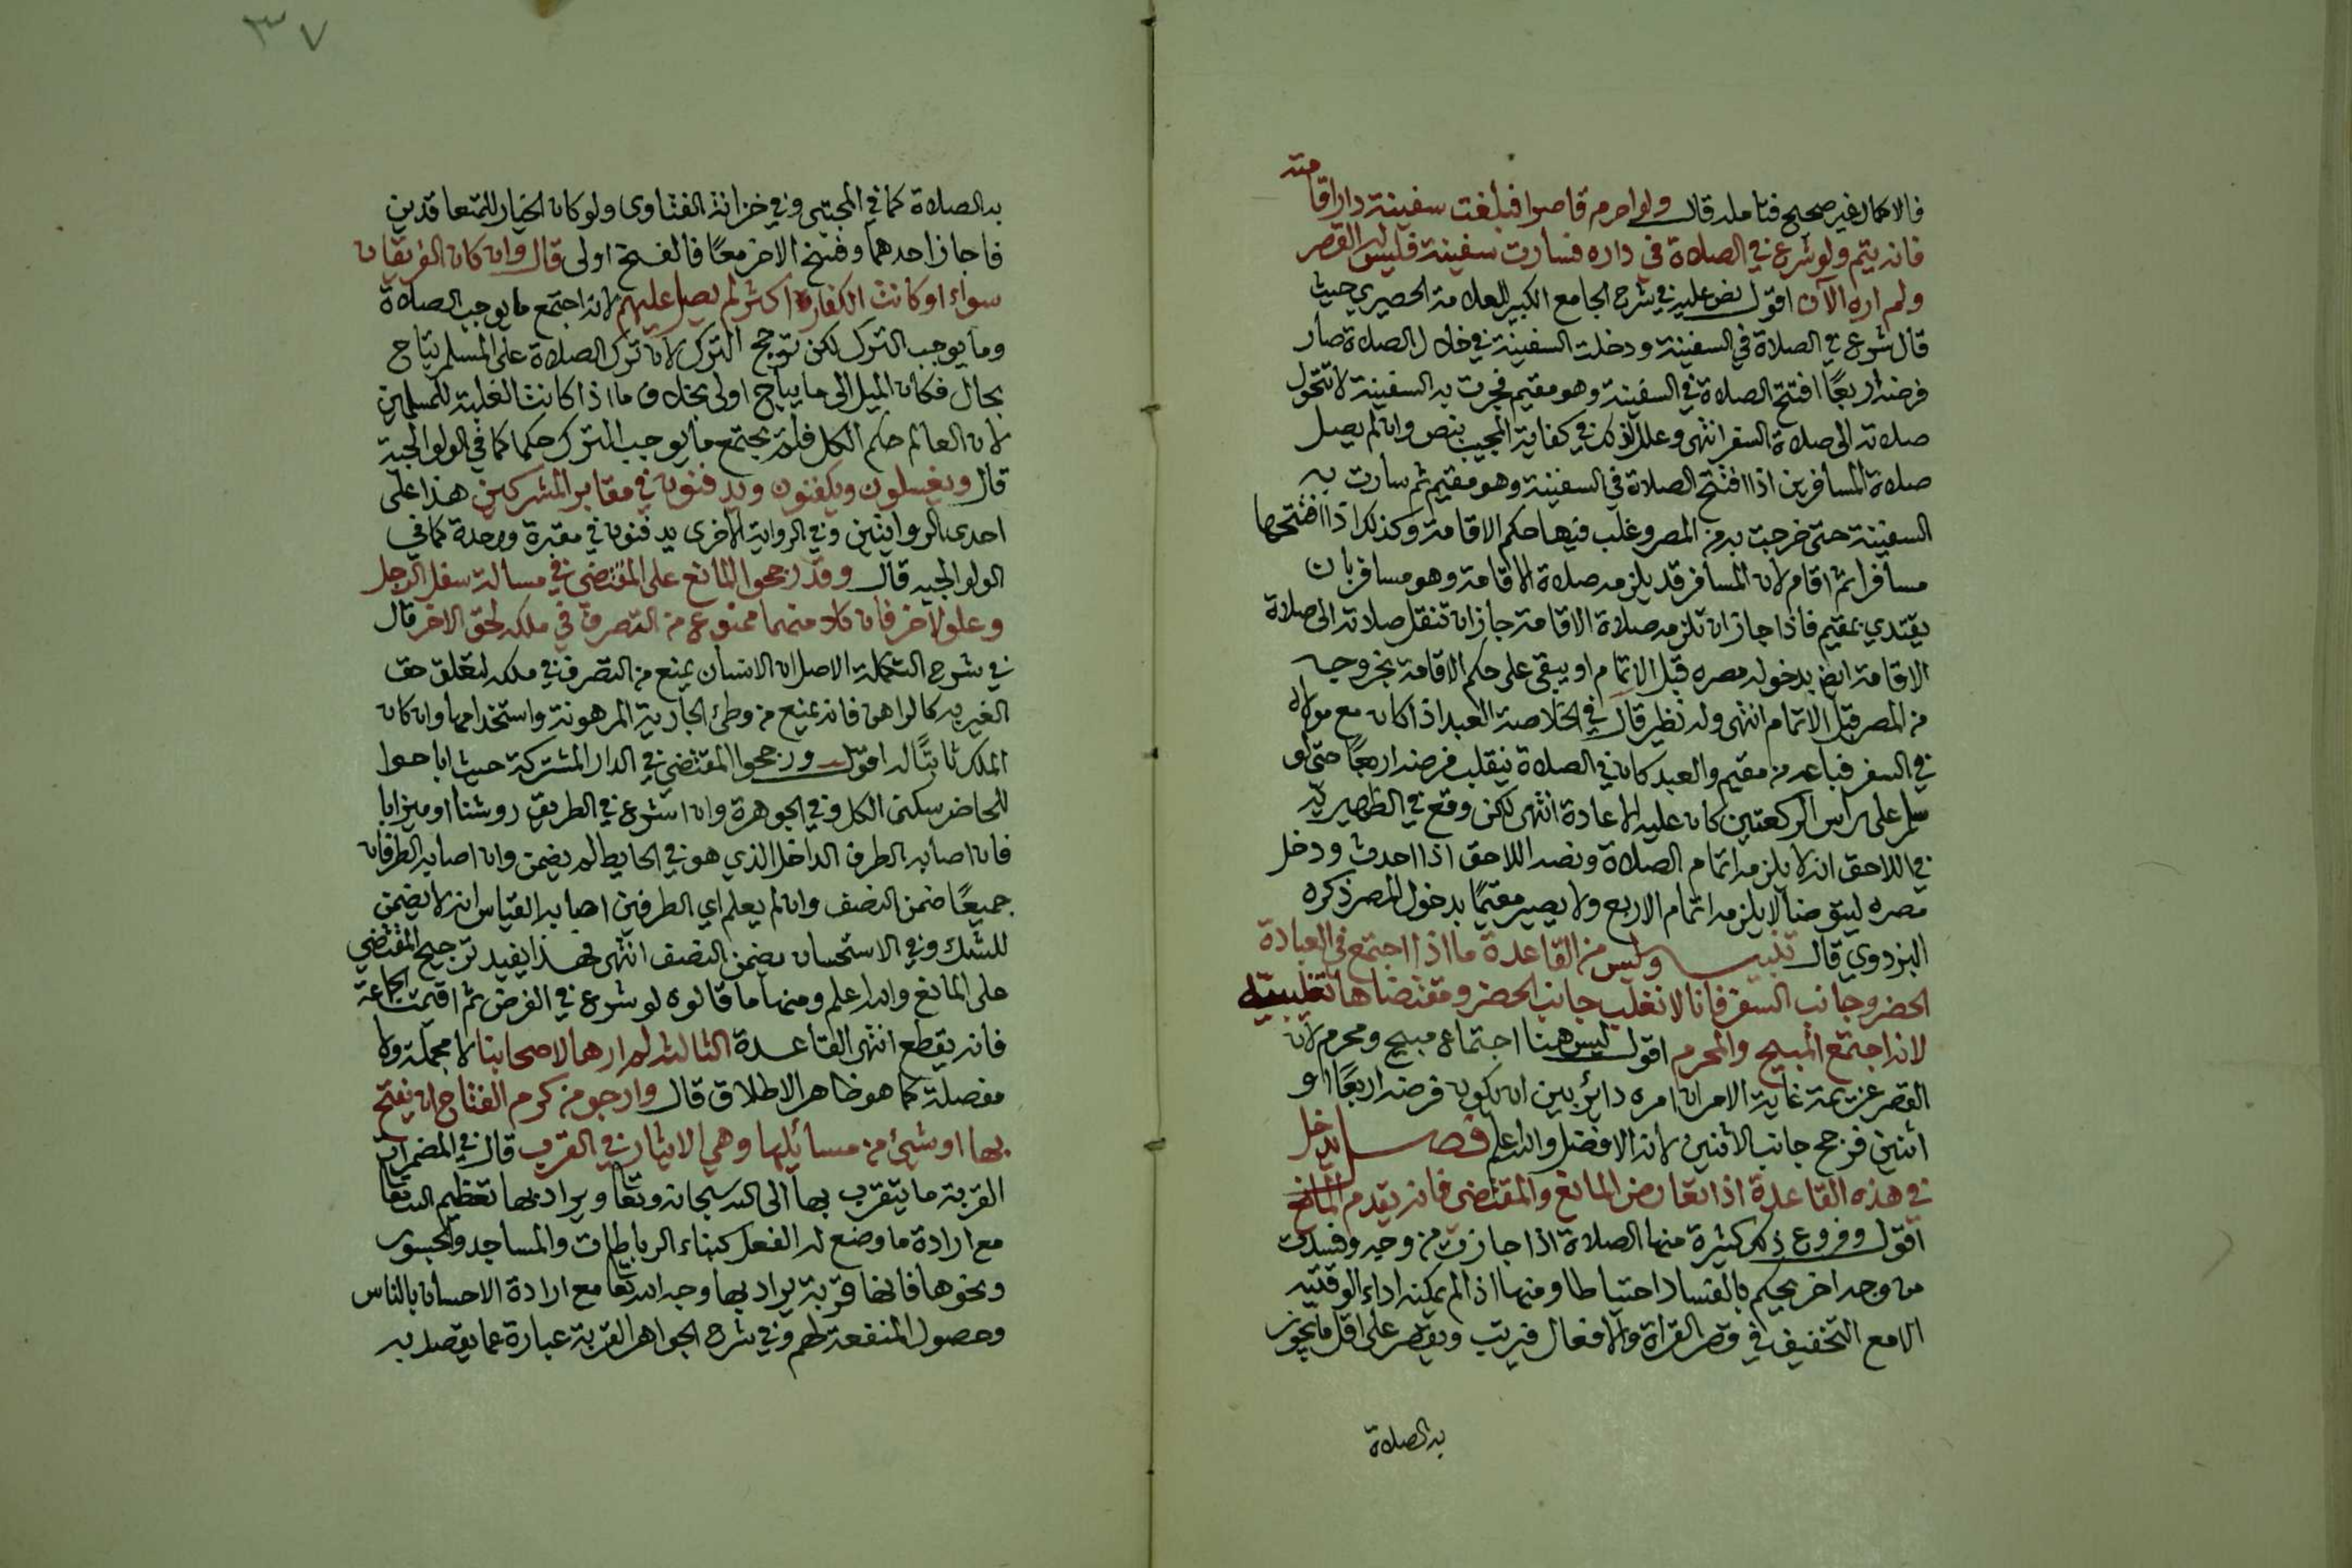 فالاكمال غير صحيح فتامله قال ولو احرم قاصرا فبلغت سفينته دار اقامته
فانه يتم ولو شرع في الصلاة في داره فسارت سفينته فليس له القصر
ولم اره الآن اقول نص عليه في شرح الجامع الكبير للعلامة الحصيري حيث
قال شرع في الصلاة في السفينة ودخلت السفينة في خلال الصلاة صار
فرضه اربعًا افتتح الصلاة في السفينة وهو مقيم فجرت به السفينة لا تتحول
صلاته الى صلاة السفر انتهى وعلل لذلك في كفاية المجيب بنص وان لم يصل
صلاة المسافرين اذا افتتح الصلاة في السفينة وهو مقيم ثم سارت به
السفينة حتى خرجت به من المصر وغلب فيها حكم الاقامة وكذلك اذا افتتحها
مسافرا ثم اقام لان المسافر قد يلزمه صلاة الاقامة وهو مسافر بان
يقتدي بمقيم فاذا جاز ان تلزمه صلاة الاقامة جاز ان تنقل صلاته الى صلاة
الاقامة ايض بدخوله مصره قبل الاتمام او يبقى على حكم الاقامة بخروجه
من المصر قبل الاتمام انتهى وله نظير قال في الخلاصة العبد اذا كان مع مولاه
في السفر فباعه من مقيم والعبد كان في الصلاة ينقلب فرضه اربعًا حتى لو
سلم على راس الركعتين كان عليه الاعادة انتهى لكن وقع في الظهيرية
في اللاحق انه لا يلزمه اتمام الصلاة ونصه اللاحق اذا احدث ودخل
مصره ليتوضا لا يلزمه اتمام الاربع ولا يصير مقيمًا بدخول المصر ذكره
البزدوي قال تنبيه وليس من القاعدة ما اذا اجتمع في العبادة
الحضر وجانب السفر فانا لا نغلب جانب الحضر ومقتضاها تغليبه
لانه اجتمع المبيح والمحرم اقول ليس هنا اجتماع مبيح ومحرم لان
القصر عزيمة غاية الامر ان امره دائر بين ان يكون فرضه اربعًا او
اثنين فرجح جانب الاثنين لانه الافضل والله اعلم فصل يدخل
في هذه القاعدة اذا تعارض المانع والمقتضى فانه يقدم المانع
اقول وفروع ذلك كثيرة منها الصلاة اذا جازت من وجه وفسدت
من وجه اخر يحكم بالفساد احتياطا ومنها اذا لم يمكنه اداء الوقتية
الا مع التخفيف في قصر القراة والافعال فيرتب ويقتصر على اقل ما يجوز
به الصلاة
٣٧
به الصلاة كما في المجتبى وفي خزانة الفتاوى ولو كان الخيار للمتعاقدين
فاجاز احدهما وفسخ الاخر معًا فالفسخ اولى قال وان كان الفريقان
سواء او كانت الكفار اكثر لم يصل عليهم لانه اجتمع ما يوجب الصلاة
وما يوجب الترك لكن ترجح الترك لان ترك الصلاة على المسلم يباح
بحال فكان الميل الى ما يباح اولى بخلاف ما اذا كانت الغلبة للمسلمين
لان العالم حكم الكل فلم يجتمع ما يوجب الترك حكما كما في الولوالجية
قال ويغسلون ويكفنون ويدفنون في مقابر المشركين هذا على
احدى الروايتين وفي الرواية الاخرى يدفنون في مقبرة وحدة كما في
الولوالجيه قال وقد رجحوا المانع على المقتضى في مسالة سفل الرجل
وعلو لاخر فان كلا منهما ممنوع من التصرف في ملكه لحق الاخر قال
في شرح التكملة الاصل ان الانسان يمنع من التصرف في ملكه لتعلق حق
الغير به كالراهن فانه يمنع من وطئ الجارية المرهونة واستخدامها وان كان
الملك ثابتًا له اقول ورجحوا المقتضى في الدار المشتركة حيث اباحوا
للحاضر سكنى الكل وفي الجوهرة وان اشرع في الطريق روشنا او ميزابا
فان اصابه الطرف الداخل الذي هو في الحايط لم يضمن وان اصابه الطرفان
جميعًا ضمن النصف وان لم يعلم اي الطرفين اصابه القياس انه لا يضمن
للشك وفي الاستحسان يضمن النصف انتهى فهذا يفيد ترجيح المقتضي
على المانع والله اعلم ومنها ما قالوه لو شرع في الفرض ثم اقيمت الجماعة
فانه يقطع انتهى القاعدة الثالثه لم ارها لاصحابنا لا مجملة ولا
مفصلة كما هو ظاهر الاطلاق قال وارجو من كرم الفتاح ان يفتح
بها او شيئ من مسائيلها وهي الايثار في القرب قال في المضمرات
القربة ما يتقرب بها الى الله سبحانه وتعا ويراد بها تعظيم الله تعا
مع ارادة ما وضع له الفعل كبناء الرباطات والمساجد والجسور
ونحوها فانها قربة يراد بها وجه الله تعا مع ارادة الاحسان بالناس
وحصول المنفعة لهم وفي شرح الجواهر القربة عبارة عما يقصد به